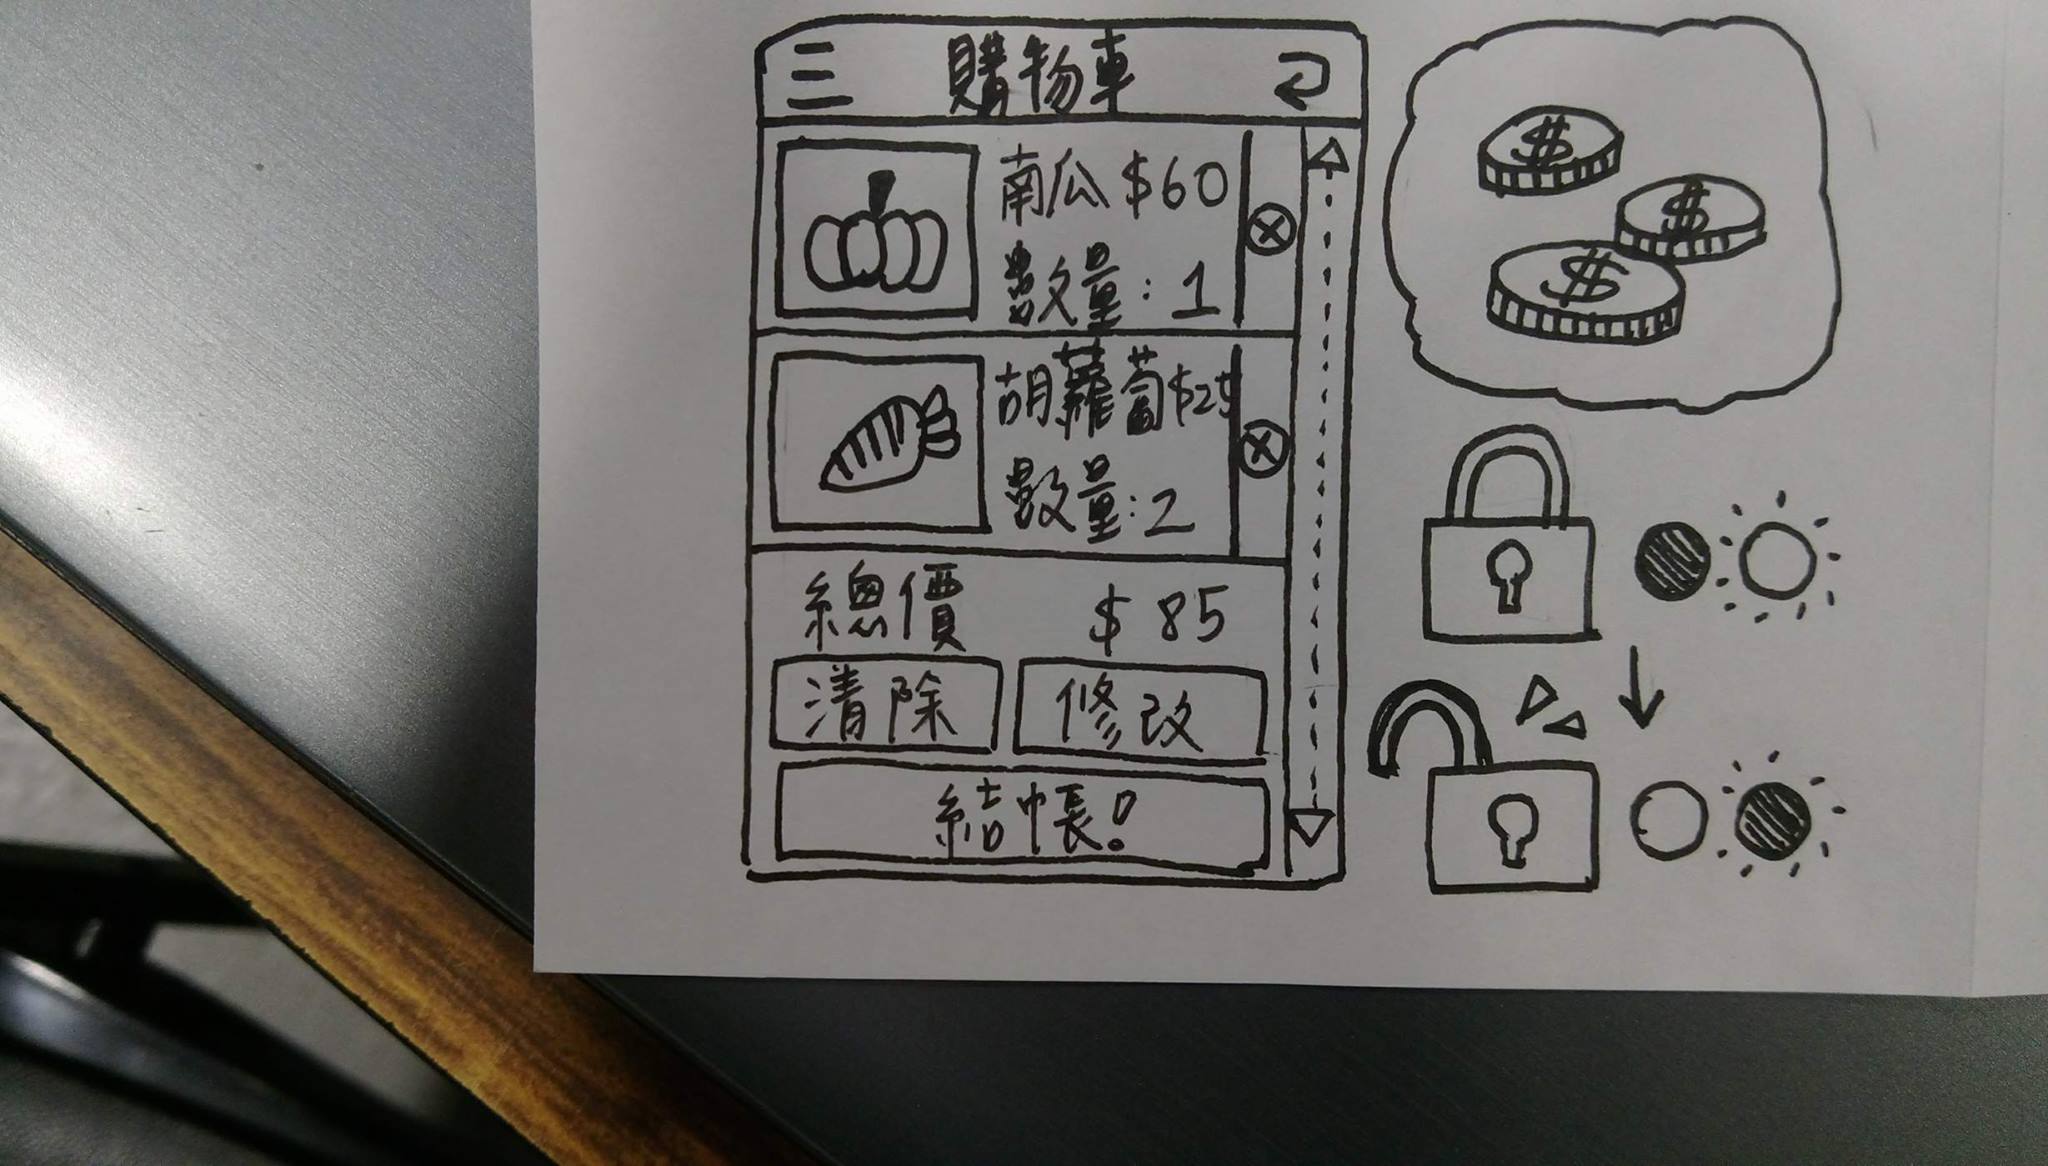 購物車
南瓜 $60
數量：1
胡蘿蔔 $25
數量：2
總價 $85
清除 修改
結帳！
$
$
$